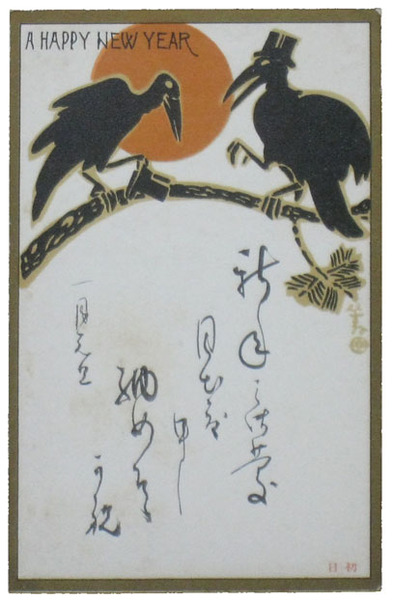 A HAPPY NEW YEAR
新年之御慶
目出度
申し
納め候
一月元旦
初日